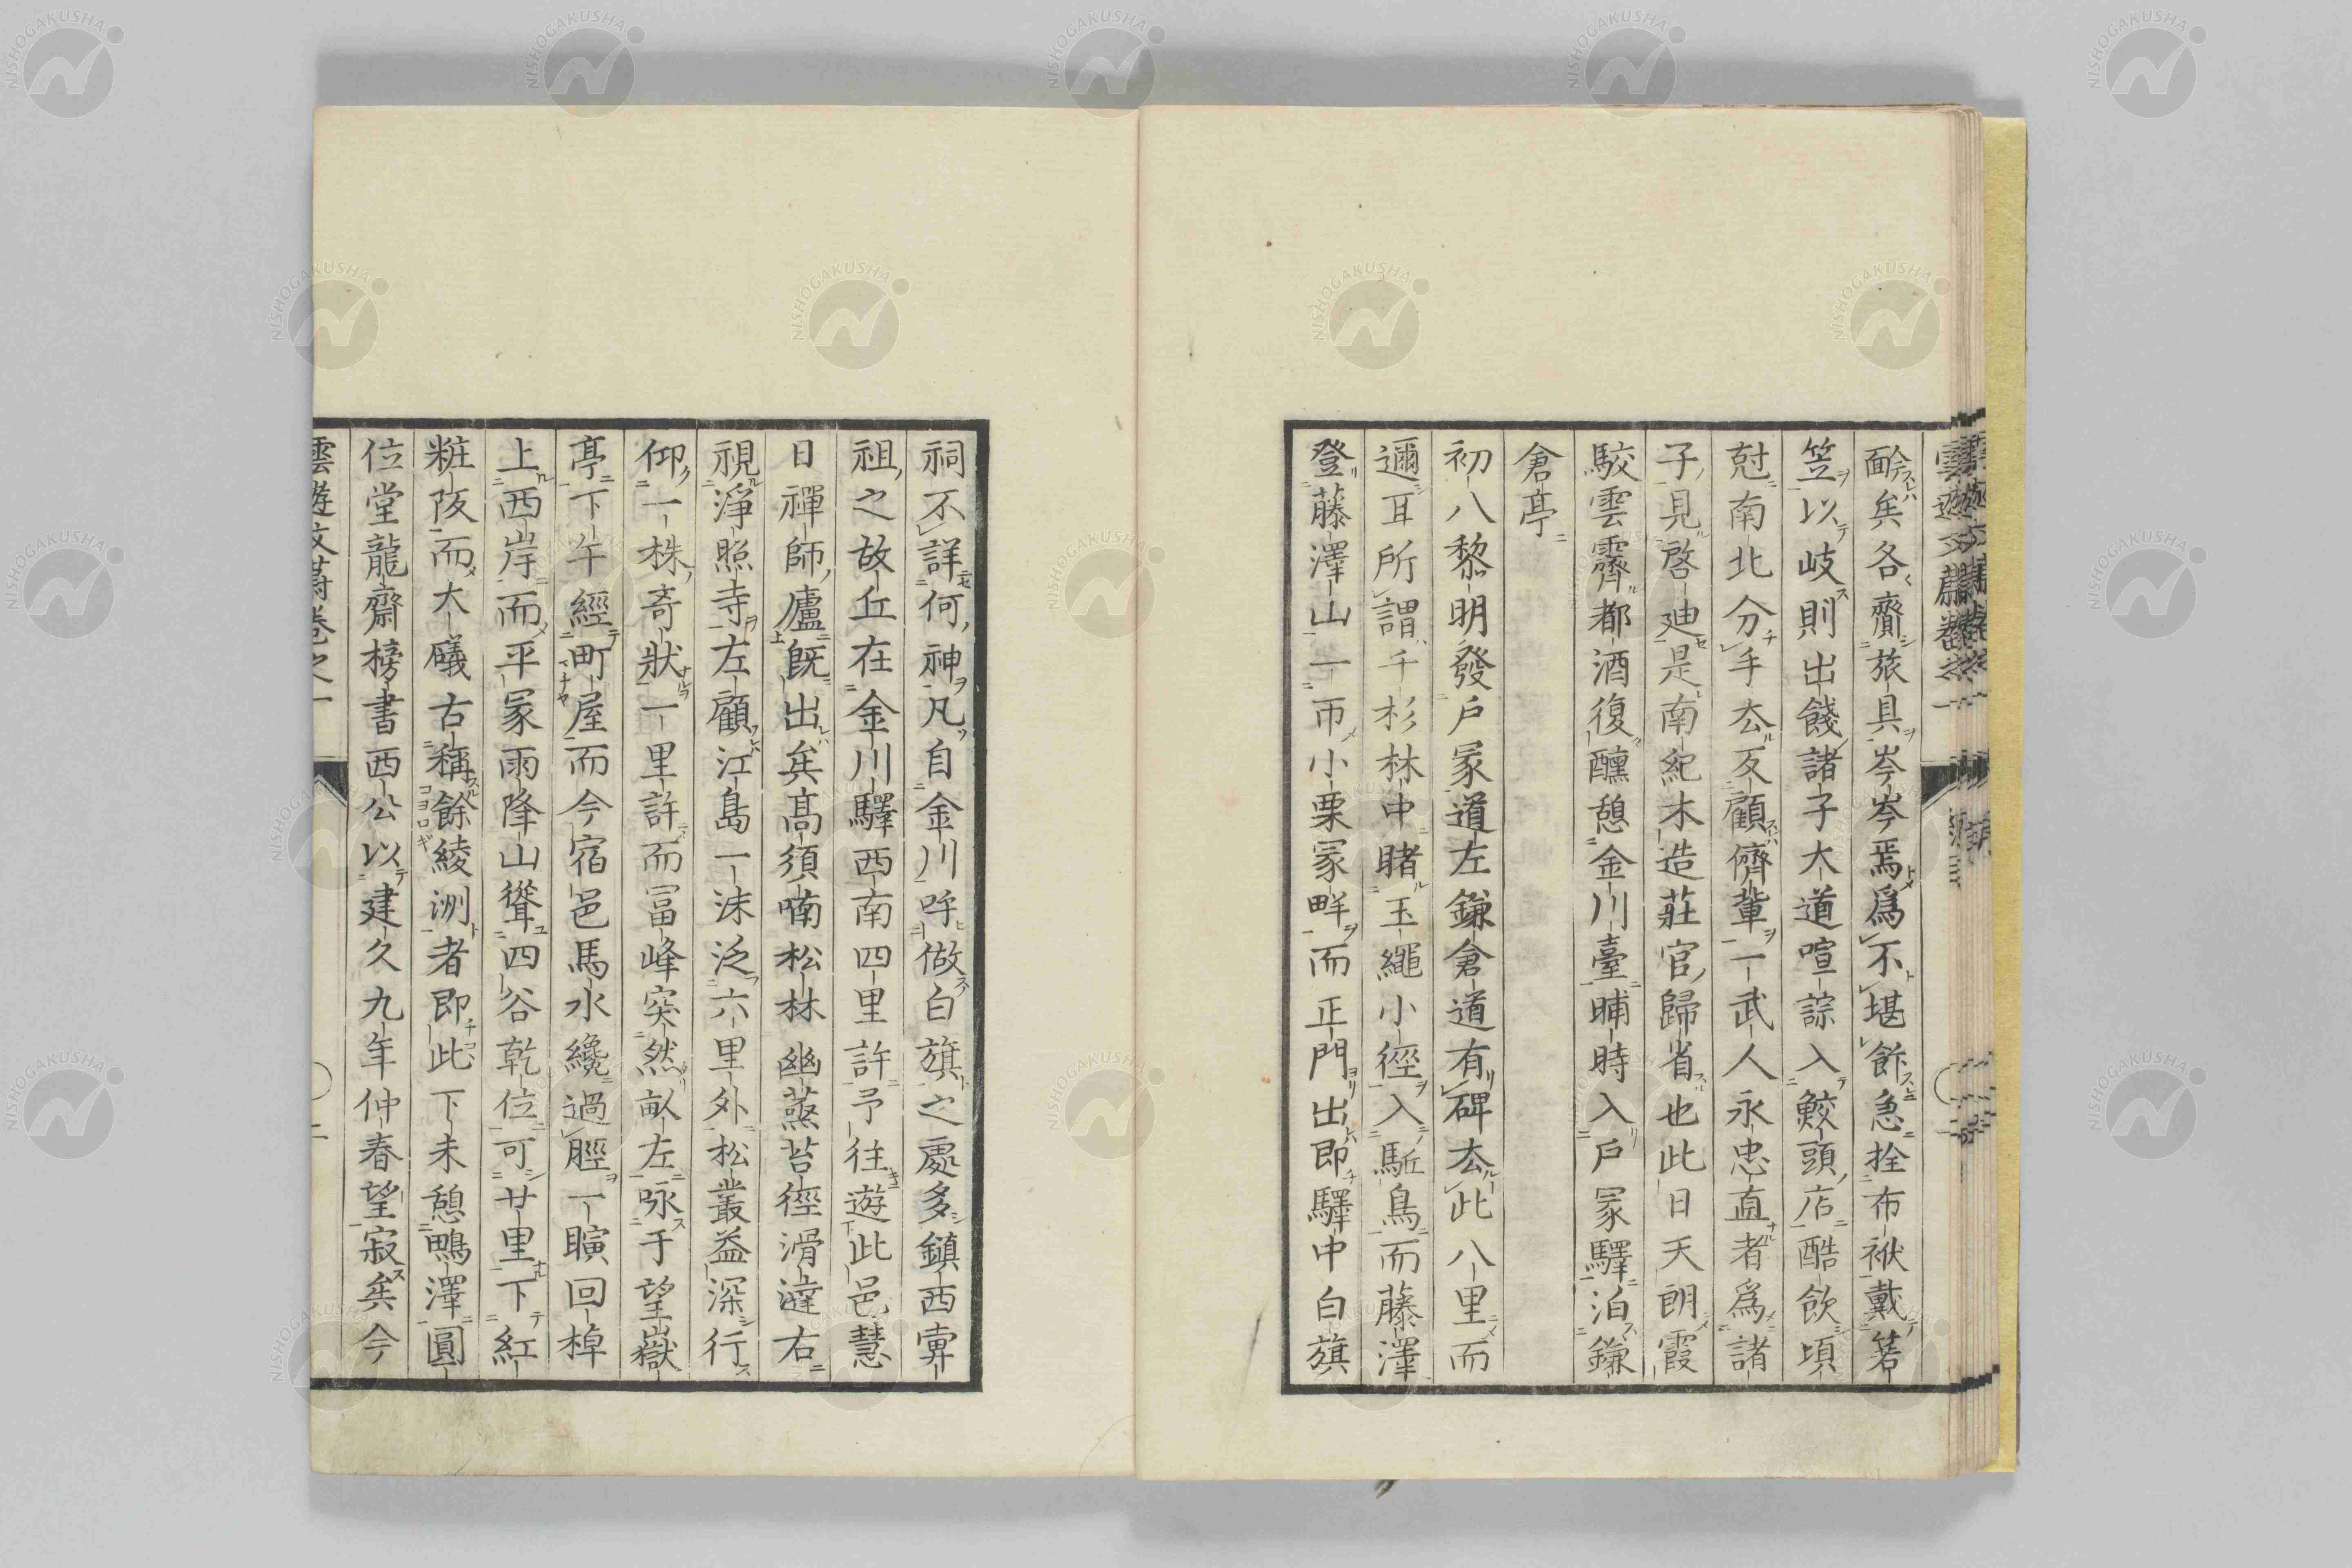 矣各齎旅具岑岑焉爲不堪餘急拴布袱戴箬
笠以岐則出餞諸子大道喧誴入鮫頭店酷飮頃
尅南北分手厺反顧儕軰一武人永忠直者爲諸
子見啓廸是南紀木造莊官歸省也此日天朗霞
駮雲霽都酒復醺憩金川臺晡時入戶冢驛泊鎌
倉亭
初八黎明發戶冢道左鎌倉道有碑厺此八里而
邇耳所謂千杉林中睹玉繩小徑入鳥而藤澤
登藤澤山一帀小栗冢畔而正門出即驛中白旗
祠不詳何神凡自金川呼做白旗之處多鎮西
祖之故丘在金川驛西南四里許予往遊此邑慧
日禪師廬旣出矣髙須喃松林幽蒸苔徑滑澾右
視淨照寺左顧江島一沫泛六里外松叢益深行
仰一株奇狀一里許而冨峰突然畒左咏于望嶽
亭下午經町屋而今宿邑馬水纔過脛一瞚回棹
上西岸而平冢雨降山聳四谷乾位可廿里下紅
粧阪而大礒古稱餘綾洌者即此下未憩鴫澤圓
位堂龍齋榜書西公以建久九年仲春望寂矣今
雲遊文蔚卷之一
NISHOGAKUSHA